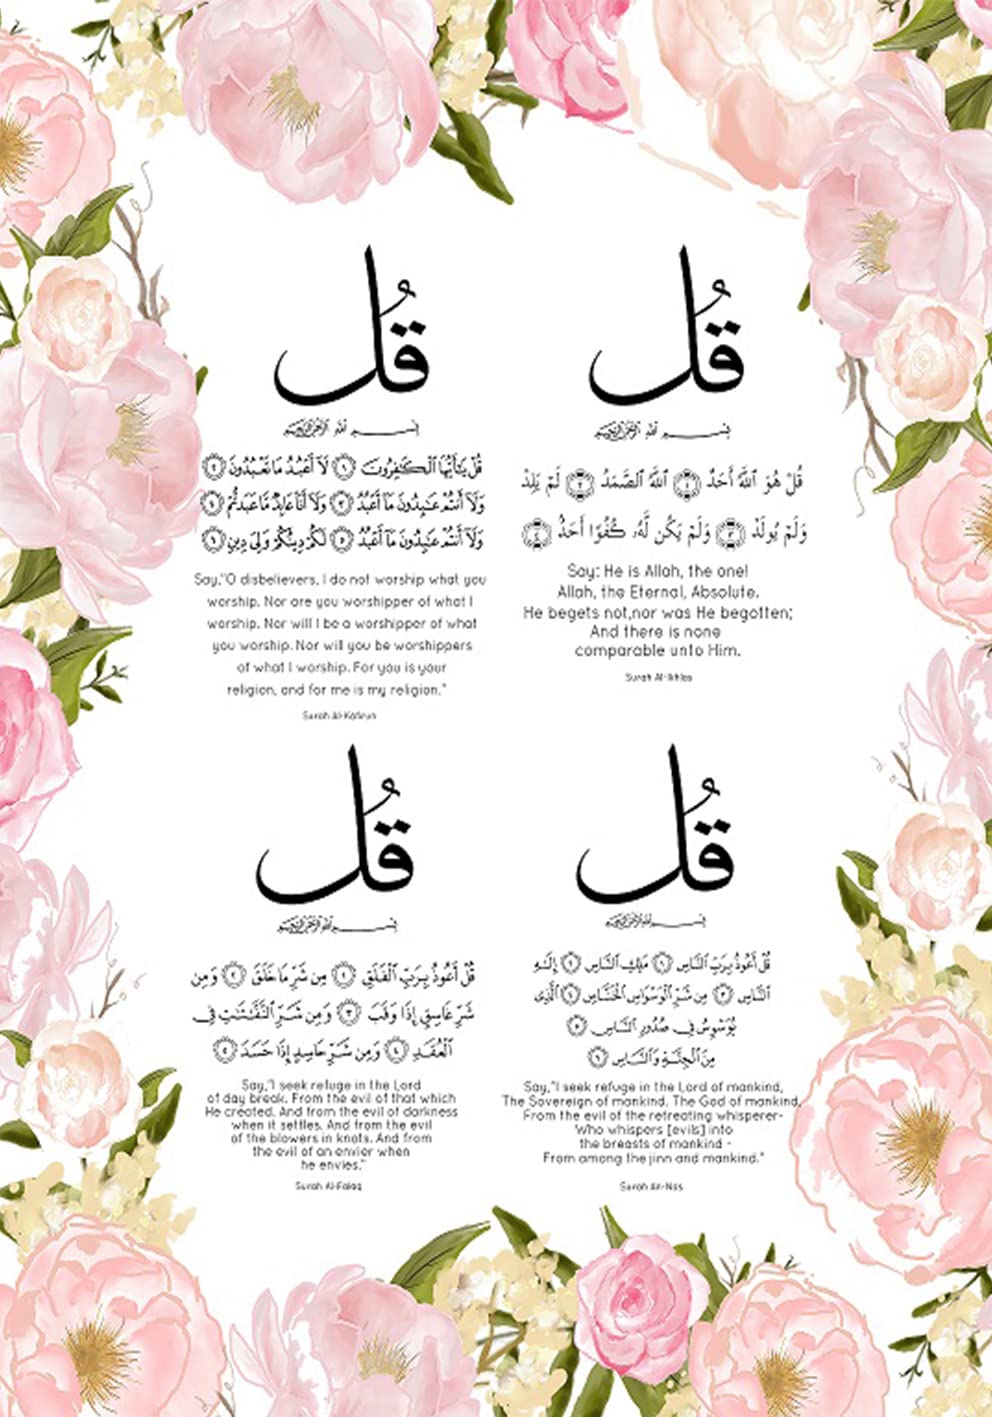 قُلْ
بِسْمِ ٱللَّهِ ٱلرَّحْمَٰنِ ٱلرَّحِيمِ
قُلْ يَٰٓأَيُّهَا ٱلْكَٰفِرُونَ ١ لَآ أَعْبُدُ مَا تَعْبُدُونَ ٢
وَلَآ أَنتُمْ عَٰبِدُونَ مَآ أَعْبُدُ ٣ وَلَآ أَنَا۠ عَابِدٌ مَّا عَبَدتُّمْ ٤
وَلَآ أَنتُمْ عَٰبِدُونَ مَآ أَعْبُدُ ٥ لَكُمْ دِينُكُمْ وَلِىَ دِينِ ٦
Say,"O disbelievers, I do not worship what you
worship. Nor are you worshipper of what I
worship. Nor will I be a worshipper of what
you worship. Nor will you be worshippers
of what I worship. For you is your
religion, and for me is my religion."
Surah Al-Kafirun
قُلْ
بِسْمِ ٱللَّهِ ٱلرَّحْمَٰنِ ٱلرَّحِيمِ
قُلْ هُوَ ٱللَّهُ أَحَدٌ ١ ٱللَّهُ ٱلصَّمَدُ ٢ لَمْ يَلِدْ
وَلَمْ يُولَدْ ٣ وَلَمْ يَكُن لَّهُۥ كُفُوًا أَحَدٌۢ ٤
Say: He is Allah, the one!
Allah, the Eternal, Absolute.
He begets not,nor was He begotten;
And there is none
comparable unto Him.
Surah Al-Ikhlas
قُلْ
بِسْمِ ٱللَّهِ ٱلرَّحْمَٰنِ ٱلرَّحِيمِ
قُلْ أَعُوذُ بِرَبِّ ٱلْفَلَقِ ١ مِن شَرِّ مَا خَلَقَ ٢ وَمِن
شَرِّ غَاسِقٍ إِذَا وَقَبَ ٣ وَمِن شَرِّ ٱلنَّفَّٰثَٰتِ فِى
ٱلْعُقَدِ ٤ وَمِن شَرِّ حَاسِدٍ إِذَا حَسَدَ ٥
Say,"I seek refuge in the Lord
of day break. From the evil of that which
He created. And from the evil of darkness
when it settles. And from the evil
of the blowers in knots. And from
the evil of an envier when
he envies."
Surah Al-Falaq
قُلْ
بِسْمِ ٱللَّهِ ٱلرَّحْمَٰنِ ٱلرَّحِيمِ
قُلْ أَعُوذُ بِرَبِّ ٱلنَّاسِ ١ مَلِكِ ٱلنَّاسِ ٢ إِلَٰهِ
ٱلنَّاسِ ٣ مِن شَرِّ ٱلْوَسْوَاسِ ٱلْخَنَّاسِ ٤ ٱلَّذِى
يُوَسْوِسُ فِى صُدُورِ ٱلنَّاسِ ٥
مِنَ ٱلْجِنَّةِ وَٱلنَّاسِ ٦
Say,"I seek refuge in the Lord of mankind,
The Sovereign of mankind. The God of mankind,
From the evil of the retreating whisperer-
Who whispers [evils] into
the breasts of mankind -
From among the jinn and mankind."
Surah An-Nas